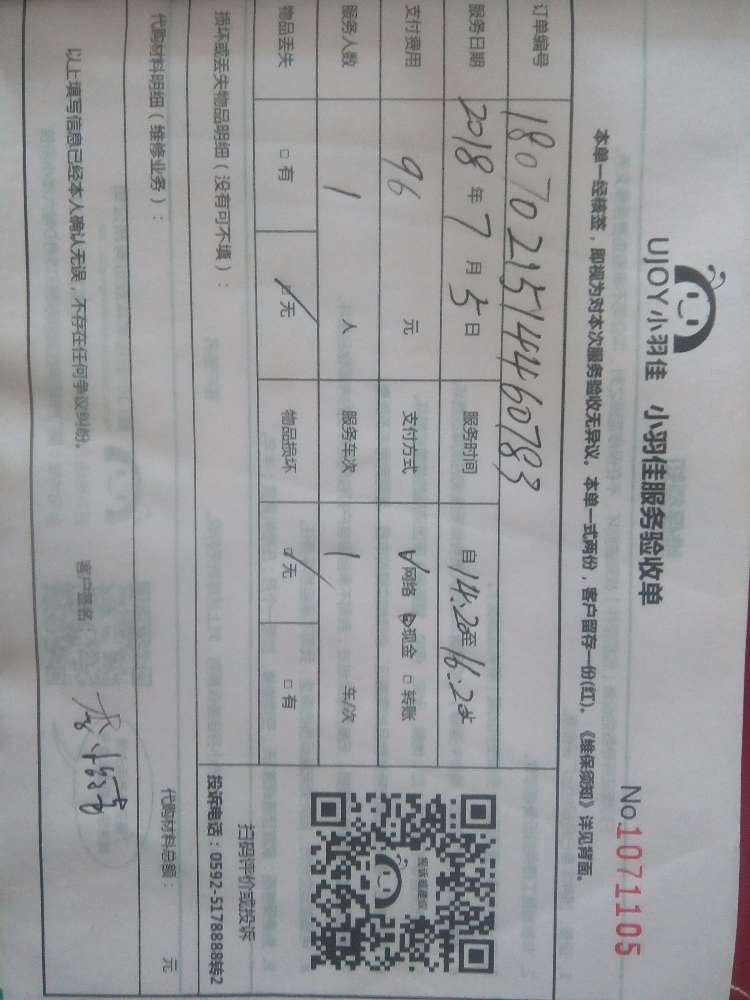 UJOY小羽佳 小羽佳服务验收单
No 1071105
本单一经核签，即视为对本次服务验收无异议。本单一式两份，客户留存一份(红)。《维保须知》详见背面。
订单编号 180702151446 0783
服务日期 2018年7月5日 服务时间 自14:20至16:20
支付费用 96 元 支付方式 网络 现金 □转账
服务人数 1 人 服务车次 1 车/次
物品丢失 □有 □无 物品损坏 □无 □有
投诉或建议
UJOY
扫码评价或投诉
投诉电话：0592-5178888转2
损坏或丢失物品明细（没有可不填）：
代购材料明细（维修业务）： 代购材料总额： 元
以上填写信息已经本人确认无误，不存在任何争议纠纷。 客户签名